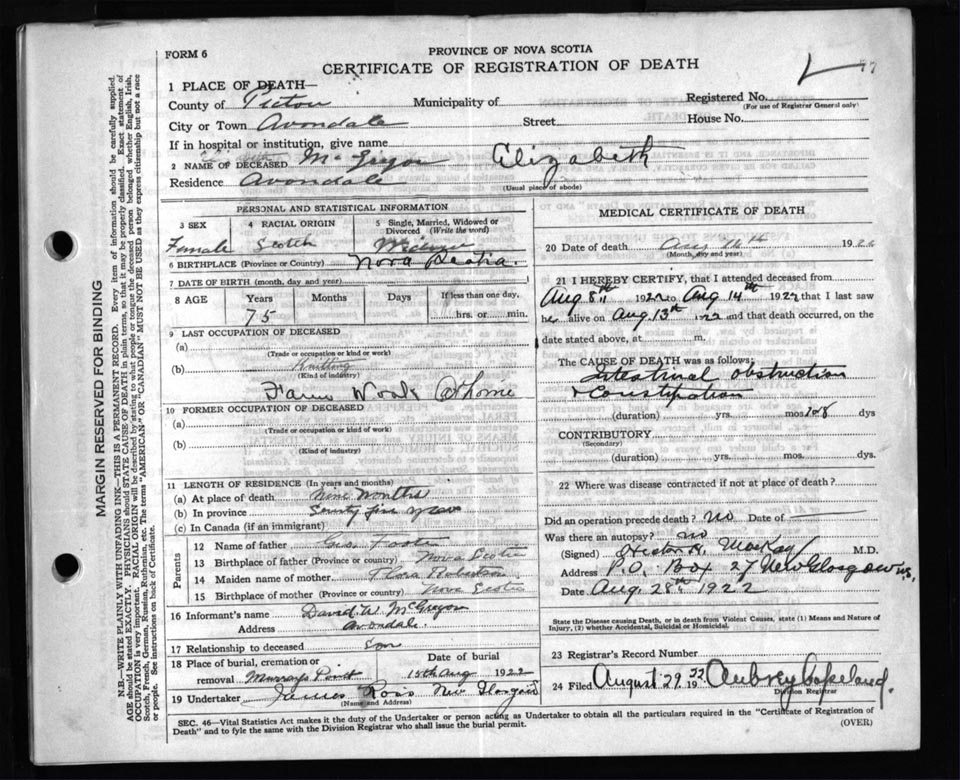 FORM 6
PROVINCE OF NOVA SCOTIA
CERTIFICATE OF REGISTRATION OF DEATH
77
1 PLACE OF DEATH—
County of Pictou Municipality of Registered No.
(For use of Registrar General only)
City or Town Avondale Street House No.
If in hospital or institution, give name
2 NAME OF DECEASED McGregor Elizabeth
Residence Avondale
(Usual place of abode)
PERSONAL AND STATISTICAL INFORMATION
3 SEX 4 RACIAL ORIGIN 5 Single, Married, Widowed or Divorced (Write the word)
Female Scotch Widow
6 BIRTHPLACE (Province or Country) Nova Scotia.
7 DATE OF BIRTH (month, day and year)
8 AGE Years Months Days If less than one day,
75 hrs. or min.
9 LAST OCCUPATION OF DECEASED
(a)
(Trade or occupation or kind or work)
(b) Knitting
(Kind of industry)
Farm Work At home
10 FORMER OCCUPATION OF DECEASED
(a)
(Trade or occupation or kind of work)
(b)
(Kind of industry)
11 LENGTH OF RESIDENCE (In years and months)
(a) At place of death Nine months
(b) In province
(c) In Canada (if an immigrant)
Parents
12 Name of father
13 Birthplace of father (Province or country) Nova Scotia
14 Maiden name of mother Flora Robertson
15 Birthplace of mother (Province or country) Nova Scotia
16 Informant's name David W. McGregor
Address Avondale.
17 Relationship to deceased Son
18 Place of burial, cremation or removal Murrays Point Date of burial 15th Aug 1922
19 Undertaker James Ross New Glasgow
(Name and Address)
MEDICAL CERTIFICATE OF DEATH
20 Date of death Aug 14th 1922
(Month, day and year)
21 I HEREBY CERTIFY, that I attended deceased from
Aug 8th 1922 to Aug 14th 1922 that I last saw
her alive on Aug 13th 22 and that death occurred, on the
date stated above, at m.
The CAUSE OF DEATH was as follows:
Intestinal obstruction
& Constipation
(duration) yrs. mos. dys
CONTRIBUTORY
(Secondary)
(duration) yrs. mos. dys.
22 Where was disease contracted if not at place of death?
Did an operation precede death? No Date of
Was there an autopsy? no
(Signed) Hector H. MacKay M.D.
Address P.O. Box 27 New Glasgow N.S.
Date Aug. 28th 1922
State the Disease causing Death, or in death from Violent Causes, state (1) Means and Nature of
Injury, (2) whether Accidental, Suicidal or Homicidal.
23 Registrar's Record Number
24 Filed August 29 1922 Aubrey Copeland.
Division Registrar
SEC. 46—Vital Statistics Act makes it the duty of the Undertaker or person acting as Undertaker to obtain all the particulars required in the "Certificate of Registration of
Death" and to fyle the same with the Division Registrar who shall issue the burial permit.
(OVER)
MARGIN RESERVED FOR BINDING
N.B.—WRITE PLAINLY WITH UNFADING INK—THIS IS A PERMANENT RECORD. Every item of information should be carefully supplied.
AGE should be stated EXACTLY. PHYSICIANS should STATE CAUSE OF DEATH in plain terms, so that it may be properly classified. Exact statement of
OCCUPATION is very important. RACIAL ORIGIN will be described by stating to what people or tongue the deceased person belonged whether English, Irish,
Scotch, French, German, Russian, Ruthenian, etc. The terms "AMERICAN" OR "CANADIAN" MUST NOT BE USED as they express citizenship but not a race
or people. See instructions on back of Certificate.